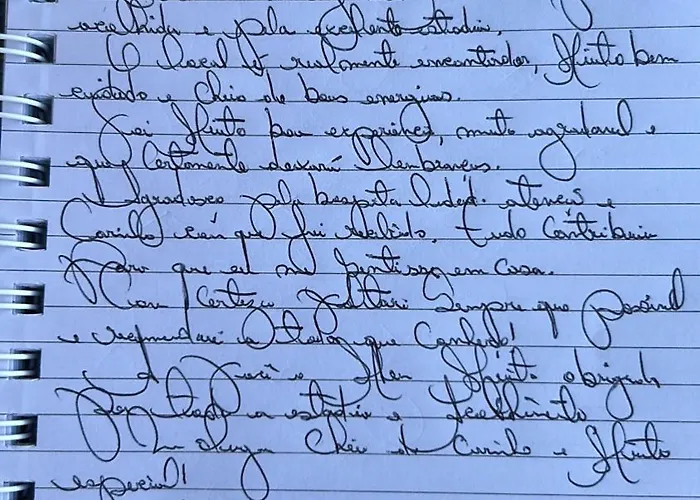 acolhida e pela excelente estadia.
O local é realmente encantador, muito bem
cuidado e cheio de boas energias.
Foi muito boa experiência, muito agradável e
que certamente deixará lembranças.
Agradeço pela hospitalidade. atenção e
Carinho com que fui recebido. tudo contribuiu
Para que eu me sentisse em casa.
Com certeza voltarei sempre que possível
e recomendarei a todos que conheço!
muito obrigado
a estadia e acolhimento
cheio de carinho e muito
especial!